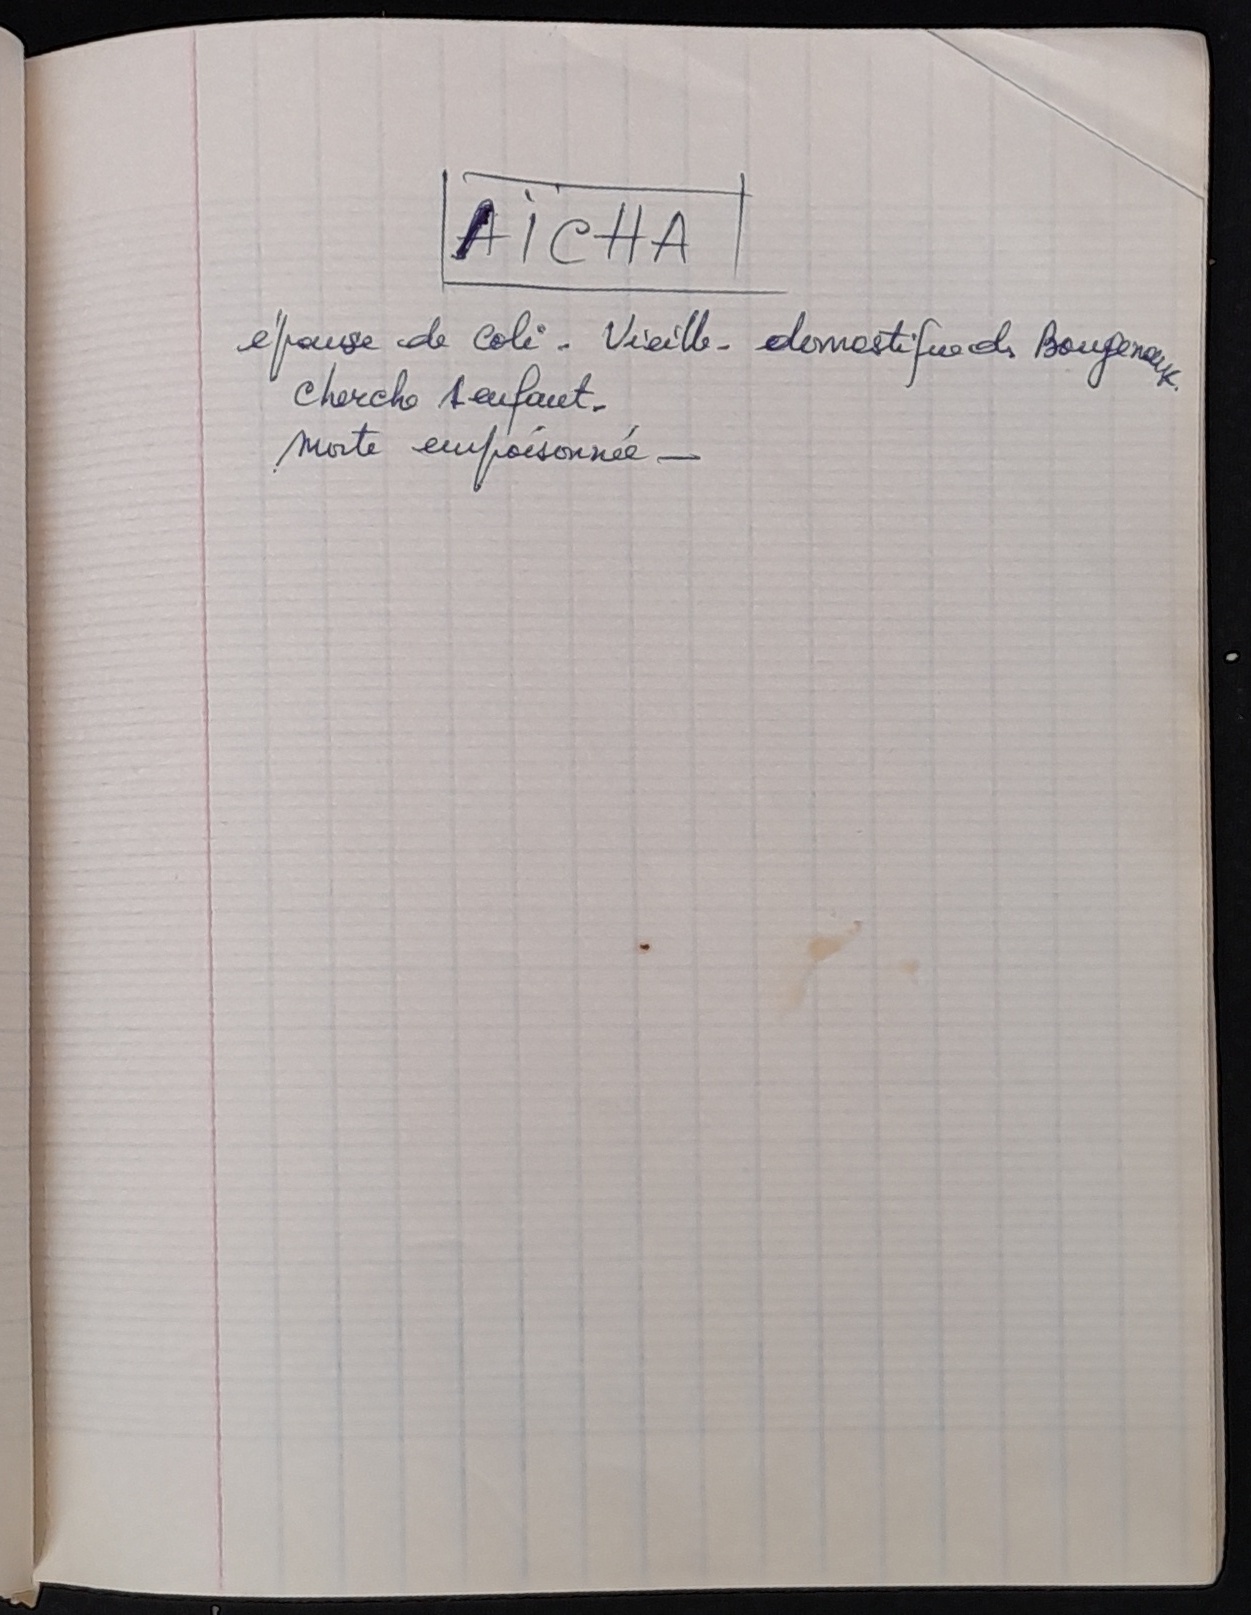 AÏCHA
épouse de Coli. Vieille. domestique de Bougenoux.
cherche 1 enfant.
Morte empoisonnée —